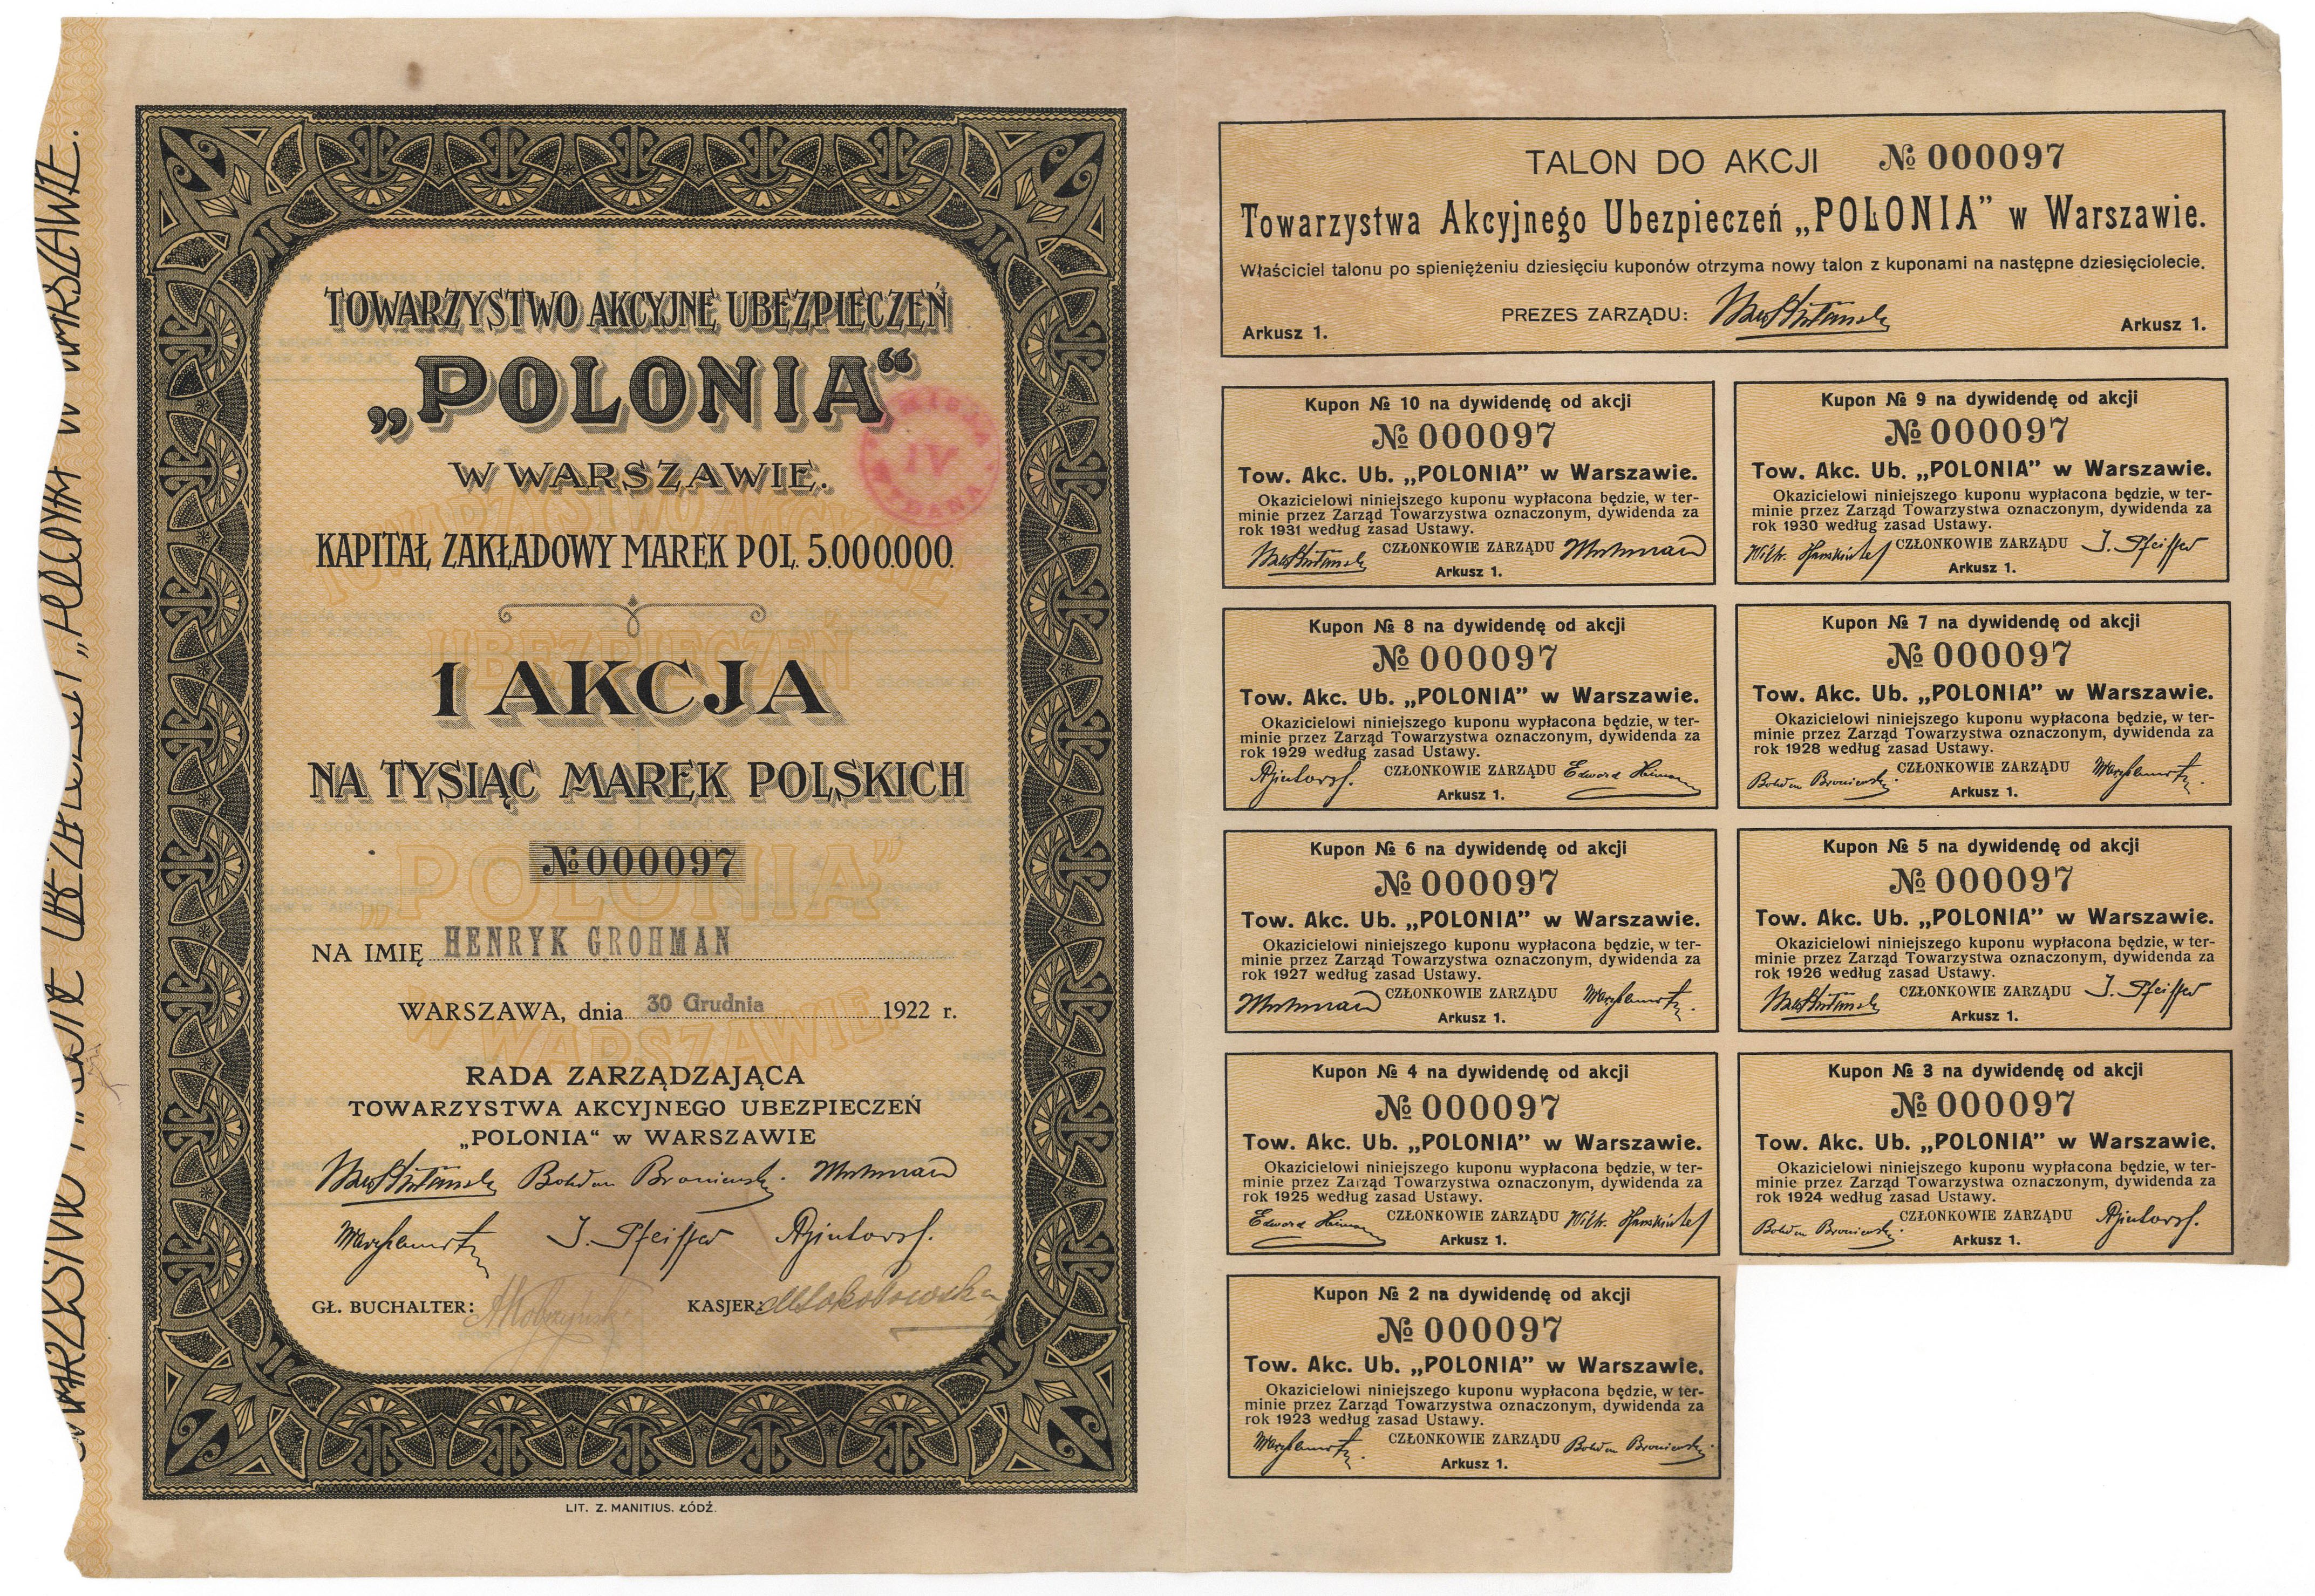 TOWARZYSTWO AKCYJNE UBEZPIECZEŃ
„POLONIA“
W WARSZAWIE.
KAPITAŁ ZAKŁADOWY MAREK POL. 5.000.000.
1 AKCJA
NA TYSIĄC MAREK POLSKICH
№ 000097
NA IMIĘ HENRYK GROHMAN
WARSZAWA, dnia 30 Grudnia 1922 r.
RADA ZARZĄDZAJĄCA
TOWARZYSTWA AKCYJNEGO UBEZPIECZEŃ
„POLONIA“ w WARSZAWIE
Bohdan Broniewski.
J. Pfeiffer
GŁ. BUCHALTER:
KASJER:
LIT. Z. MANITIUS. ŁÓDŹ.
IV
TOWARZYSTWO AKCYJNE
UBEZPIECZEŃ
„POLONIA”
W WARSZAWIE
TALON DO AKCJI № 000097
Towarzystwa Akcyjnego Ubezpieczeń „POLONIA” w Warszawie.
Właściciel talonu po spieniężeniu dziesięciu kuponów otrzyma nowy talon z kuponami na następne dziesięciolecie.
PREZES ZARZĄDU:
Arkusz 1. Arkusz 1.
Kupon № 10 na dywidendę od akcji
№ 000097
Tow. Akc. Ub. „POLONIA” w Warszawie.
Okazicielowi niniejszego kuponu wypłacona będzie, w ter-
minie przez Zarząd Towarzystwa oznaczonym, dywidenda za
rok 1931 według zasad Ustawy.
CZŁONKOWIE ZARZĄDU
Arkusz 1.
Kupon № 9 na dywidendę od akcji
№ 000097
Tow. Akc. Ub. „POLONIA” w Warszawie.
Okazicielowi niniejszego kuponu wypłacona będzie, w ter-
minie przez Zarząd Towarzystwa oznaczonym, dywidenda za
rok 1930 według zasad Ustawy.
CZŁONKOWIE ZARZĄDU J. Pfeiffer
Arkusz 1.
Kupon № 8 na dywidendę od akcji
№ 000097
Tow. Akc. Ub. „POLONIA” w Warszawie.
Okazicielowi niniejszego kuponu wypłacona będzie, w ter-
minie przez Zarząd Towarzystwa oznaczonym, dywidenda za
rok 1929 według zasad Ustawy.
CZŁONKOWIE ZARZĄDU Edward
Arkusz 1.
Kupon № 7 na dywidendę od akcji
№ 000097
Tow. Akc. Ub. „POLONIA” w Warszawie.
Okazicielowi niniejszego kuponu wypłacona będzie, w ter-
minie przez Zarząd Towarzystwa oznaczonym, dywidenda za
rok 1928 według zasad Ustawy.
Bohdan Broniewski. CZŁONKOWIE ZARZĄDU
Arkusz 1.
Kupon № 6 na dywidendę od akcji
№ 000097
Tow. Akc. Ub. „POLONIA” w Warszawie.
Okazicielowi niniejszego kuponu wypłacona będzie, w ter-
minie przez Zarząd Towarzystwa oznaczonym, dywidenda za
rok 1927 według zasad Ustawy.
CZŁONKOWIE ZARZĄDU
Arkusz 1.
Kupon № 5 na dywidendę od akcji
№ 000097
Tow. Akc. Ub. „POLONIA” w Warszawie.
Okazicielowi niniejszego kuponu wypłacona będzie, w ter-
minie przez Zarząd Towarzystwa oznaczonym, dywidenda za
rok 1926 według zasad Ustawy.
CZŁONKOWIE ZARZĄDU J. Pfeiffer
Arkusz 1.
Kupon № 4 na dywidendę od akcji
№ 000097
Tow. Akc. Ub. „POLONIA” w Warszawie.
Okazicielowi niniejszego kuponu wypłacona będzie, w ter-
minie przez Zarząd Towarzystwa oznaczonym, dywidenda za
rok 1925 według zasad Ustawy.
Edward CZŁONKOWIE ZARZĄDU
Arkusz 1.
Kupon № 3 na dywidendę od akcji
№ 000097
Tow. Akc. Ub. „POLONIA” w Warszawie.
Okazicielowi niniejszego kuponu wypłacona będzie, w ter-
minie przez Zarząd Towarzystwa oznaczonym, dywidenda za
rok 1924 według zasad Ustawy.
Bohdan Broniewski. CZŁONKOWIE ZARZĄDU
Arkusz 1.
Kupon № 2 na dywidendę od akcji
№ 000097
Tow. Akc. Ub. „POLONIA” w Warszawie.
Okazicielowi niniejszego kuponu wypłacona będzie, w ter-
minie przez Zarząd Towarzystwa oznaczonym, dywidenda za
rok 1923 według zasad Ustawy.
CZŁONKOWIE ZARZĄDU Bohdan Broniewski.
Arkusz 1.